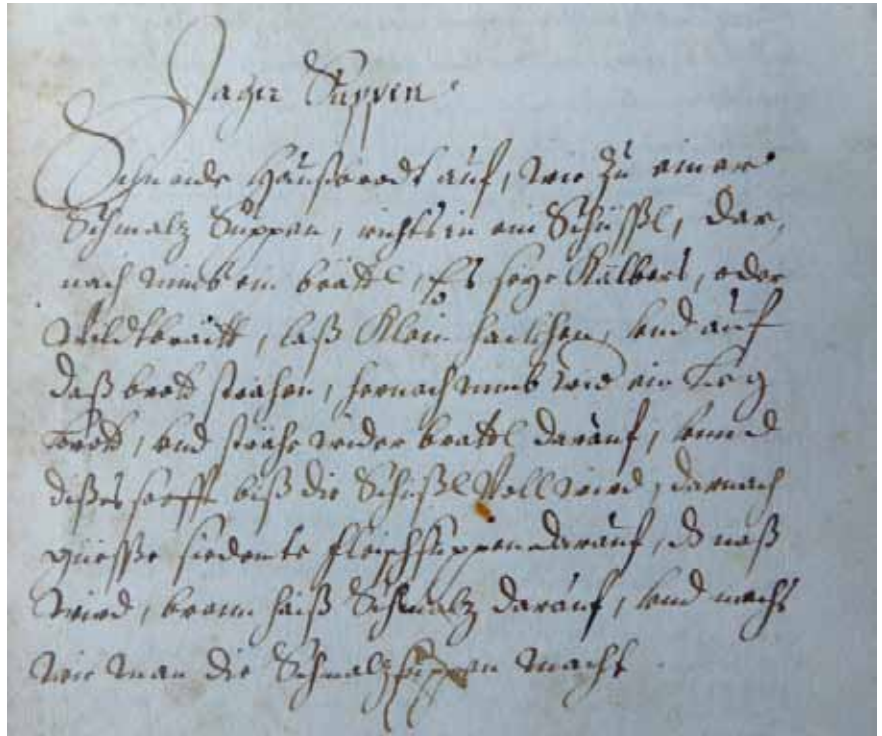 Jager Suppen
Schneide Haußbrodt auf, wie zu einer
Schmalz Suppen, richts in ein Schüssl, dar,
nach nimb ein brattl, Es seye Kälbers, oder
Wildtbrätt, laß Klein hackhen, vnd auf
daß brott strähen, hernach nimb wid ein Leg
brott, vnd strähe wider brattl darauf, vnnd
dißes so offt biß die Schüßl Voll wird, darnach
güesse siedente fleischsuppen darauf, dz naß
wird, brenn haiß Schmalz darauf, vnd machs
wie man die Schmalzsuppen macht